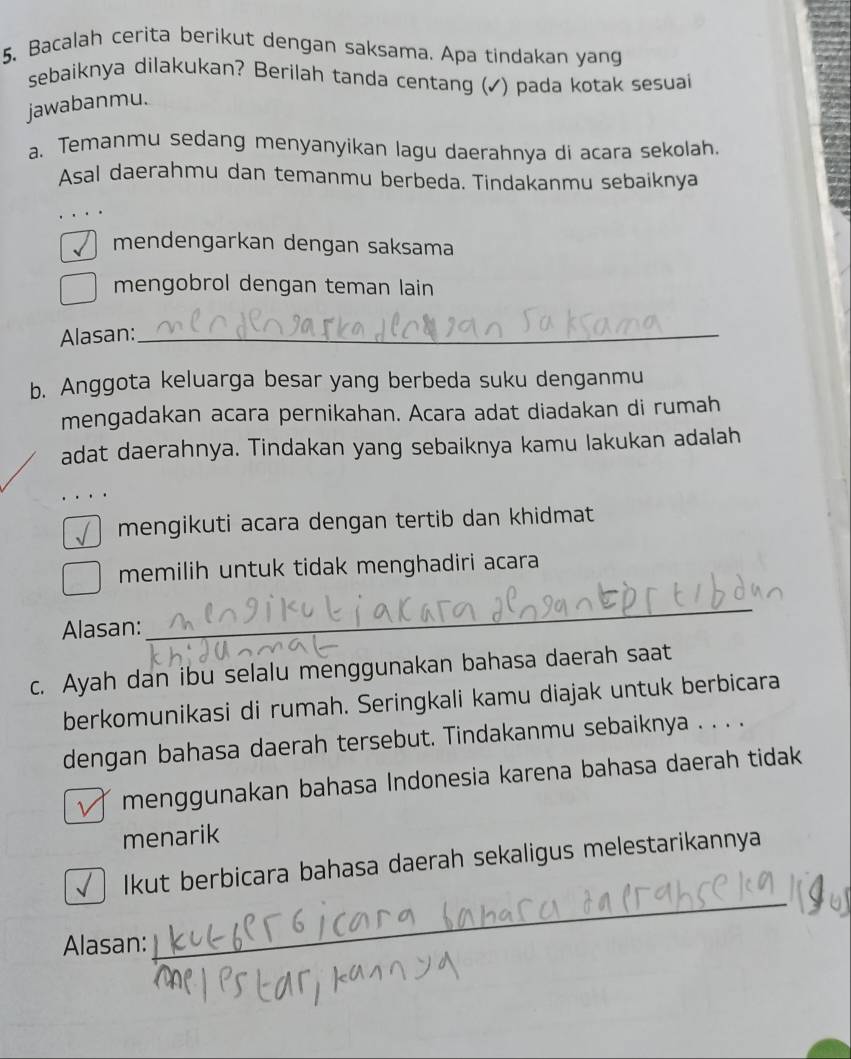 5. Bacalah cerita berikut dengan saksama. Apa tindakan yang
sebaiknya dilakukan? Berilah tanda centang (✓) pada kotak sesuai
jawabanmu.
a. Temanmu sedang menyanyikan lagu daerahnya di acara sekolah.
Asal daerahmu dan temanmu berbeda. Tindakanmu sebaiknya
. . . .
✓ mendengarkan dengan saksama
mengobrol dengan teman lain
Alasan: mendengarkadengan saksama
b. Anggota keluarga besar yang berbeda suku denganmu
mengadakan acara pernikahan. Acara adat diadakan di rumah
adat daerahnya. Tindakan yang sebaiknya kamu lakukan adalah
. . . .
✓ mengikuti acara dengan tertib dan khidmat
memilih untuk tidak menghadiri acara
Alasan: mengikutiakara dengantertibdan
khidunmat
c. Ayah dan ibu selalu menggunakan bahasa daerah saat
berkomunikasi di rumah. Seringkali kamu diajak untuk berbicara
dengan bahasa daerah tersebut. Tindakanmu sebaiknya . . . .
✓ menggunakan bahasa Indonesia karena bahasa daerah tidak
menarik
✓ Ikut berbicara bahasa daerah sekaligus melestarikannya
Alasan: ikutbersicara bahasa daerahsekaligus
melestarikannya